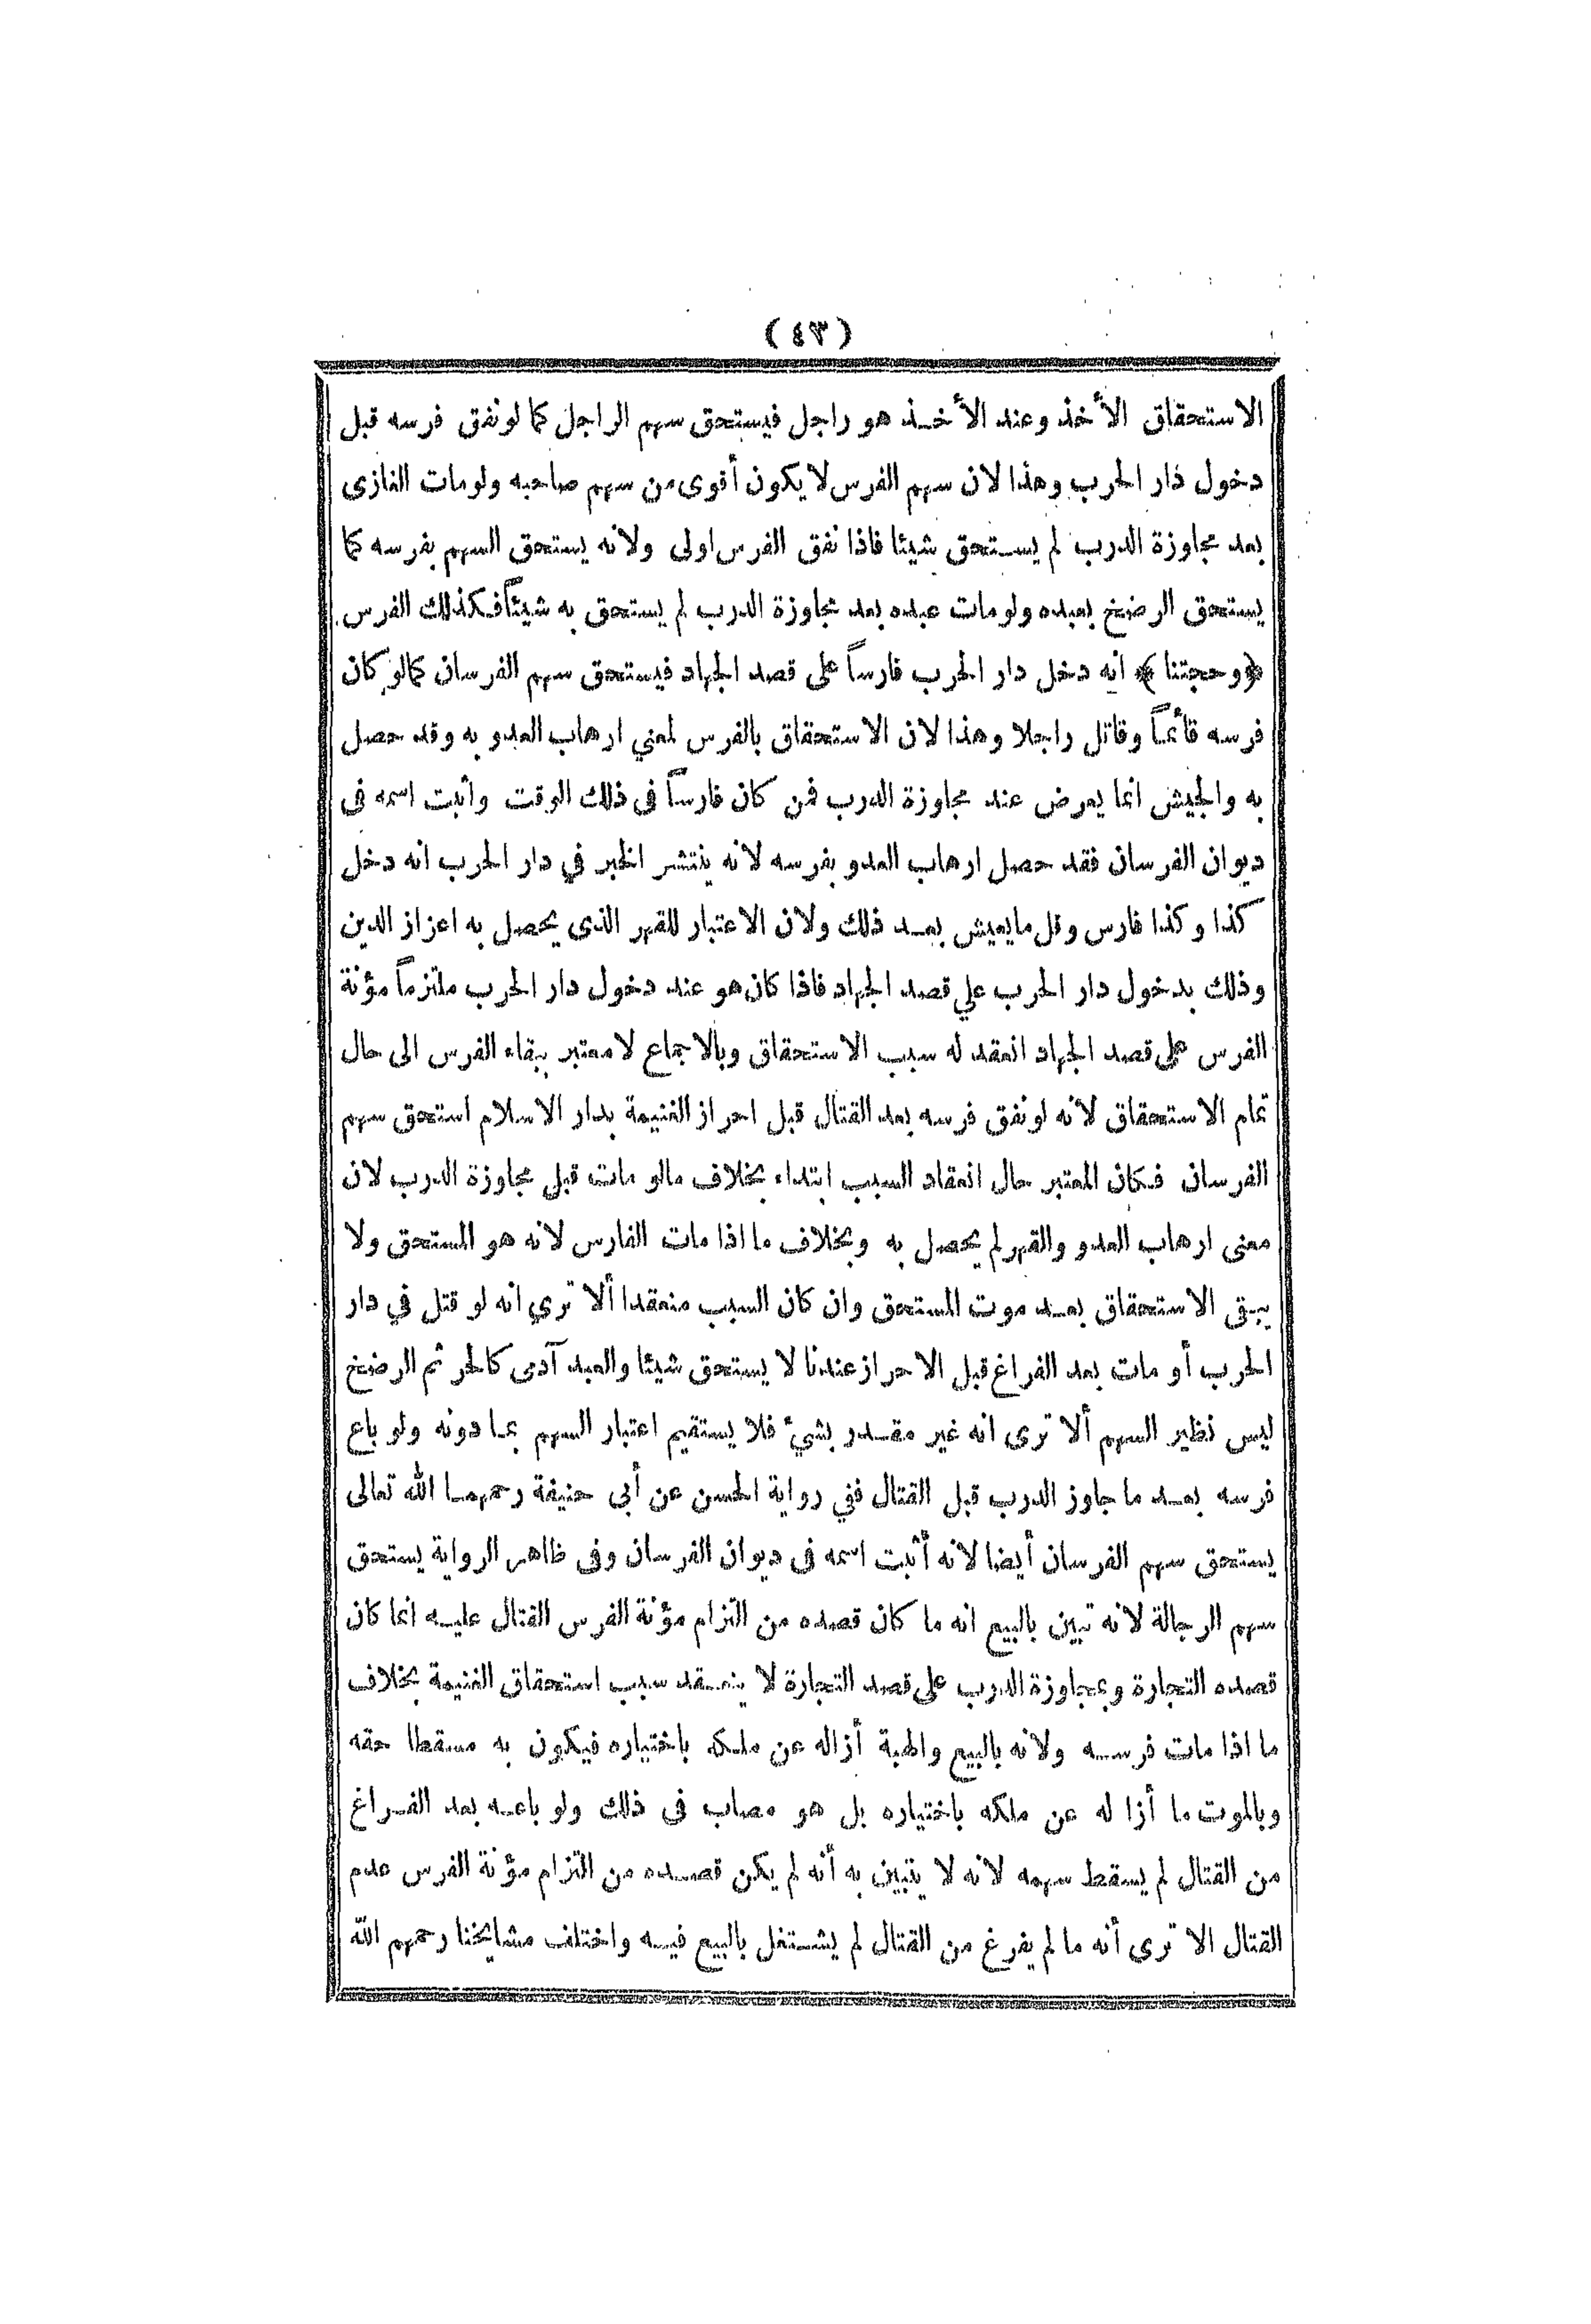 (٤٣)
الاستحقاق الأخذ وعند الأخذ هو راجل فيستحق سهم الراجل كما لو نفق فرسه قبل
دخول دار الحرب وهذا لان سهم الفرس لا يكون أقوى من سهم صاحبه ولو مات الغازى
بعد مجاوزة الدرب لم يستحق شيئا فاذا نفق الفرس اولى ولانه يستحق السهم بفرسه كما
يستحق الرضخ بعبده ولو مات عبده بعد مجاوزة الدرب لم يستحق به شيئاً فكذلك الفرس
﴿وحجتنا﴾ انه دخل دار الحرب فارساً على قصد الجهاد فيستحق سهم الفرسان كما لو كان
فرسه قائماً وقاتل راجلا وهذا لان الاستحقاق بالفرس لمعني ارهاب العدو به وقد حصل
به والجيش انما يعرض عند مجاوزة الدرب فمن كان فارساً فى ذلك الوقت واثبت اسمه فى
ديوان الفرسان فقد حصل ارهاب العدو بفرسه لانه ينتشر الخبر في دار الحرب انه دخل
كذا وكذا فارس وقل ما يعيش بعد ذلك ولان الاعتبار للقهر الذى يحصل به اعزاز الدين
وذلك بدخول دار الحرب علي قصد الجهاد فاذا كان هو عند دخول دار الحرب ملتزماً مؤنة
الفرس على قصد الجهاد انعقد له سبب الاستحقاق وبالاجماع لا معتبر ببقاء الفرس الى حال
تمام الاستحقاق لانه لو نفق فرسه بعد القتال قبل احراز الغنيمة بدار الاسلام استحق سهم
الفرسان فكان المعتبر حال انعقاد السبب ابتداء بخلاف مالو مات قبل مجاوزة الدرب لان
معنى ارهاب العدو والقهر لم يحصل به وبخلاف ما اذا مات الفارس لانه هو المستحق ولا
يبقى الاستحقاق بعد موت المستحق وان كان السبب منعقدا ألا تري انه لو قتل في دار
الحرب أو مات بعد الفراغ قبل الاحراز عندنا لا يستحق شيئا والعبد آدمى كالحر ثم الرضخ
ليس نظير السهم ألا ترى انه غير مقدر بشيء فلا يستقيم اعتبار السهم بما دونه ولو باع
فرسه بعد ما جاوز الدرب قبل القتال ففي رواية الحسن عن أبى حنيفة رحمهما الله تعالى
يستحق سهم الفرسان أيضا لانه أثبت اسمه فى ديوان الفرسان وفى ظاهر الرواية يستحق
سهم الرجالة لانه تبين بالبيع انه ما كان قصده من التزام مؤنة الفرس القتال عليه انما كان
قصده التجارة وبمجاوزة الدرب على قصد التجارة لا ينعقد سبب استحقاق الغنيمة بخلاف
ما اذا مات فرسه ولانه بالبيع والهبة أزاله عن ملكه باختياره فيكون به مسقطا حقه
وبالموت ما أزا له عن ملكه باختياره بل هو مصاب فى ذلك ولو باعه بعد الفراغ
من القتال لم يسقط سهمه لانه لا يتبين به أنه لم يكن قصده من التزام مؤنة الفرس عدم
القتال الا ترى أنه ما لم يفرغ من القتال لم يشتغل بالبيع فيه واختلف مشايخنا رحمهم الله